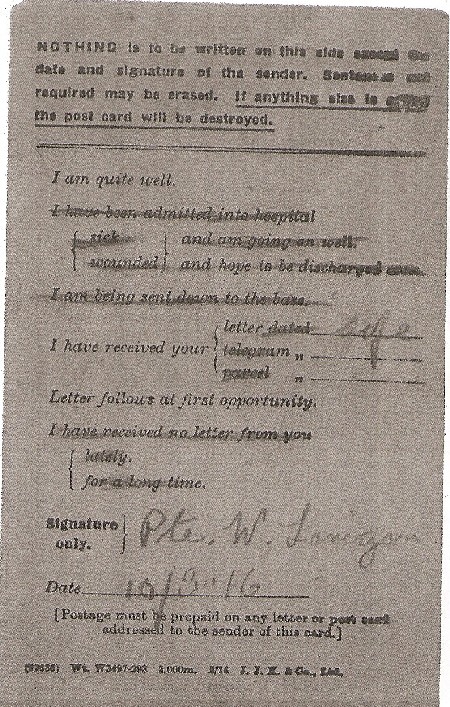 NOTHING is to be written on this side except the
date and signature of the sender. Sentences not
required may be erased. If anything else is added
the post card will be destroyed.
I am quite well.
I have been admitted into hospital
sick and am going on well.
wounded and hope to be discharged soon.
I am being sent down to the base.
letter dated
I have received your telegram „
parcel „
Letter follows at first opportunity.
I have received no letter from you
lately.
for a long time.
Signature
only.
Pte. W.
Date 10/3/16
[Postage must be prepaid on any letter or post card
addressed to the sender of this card.]
Wt. W3497-293 2,000m. J. J. K. & Co., Ltd.